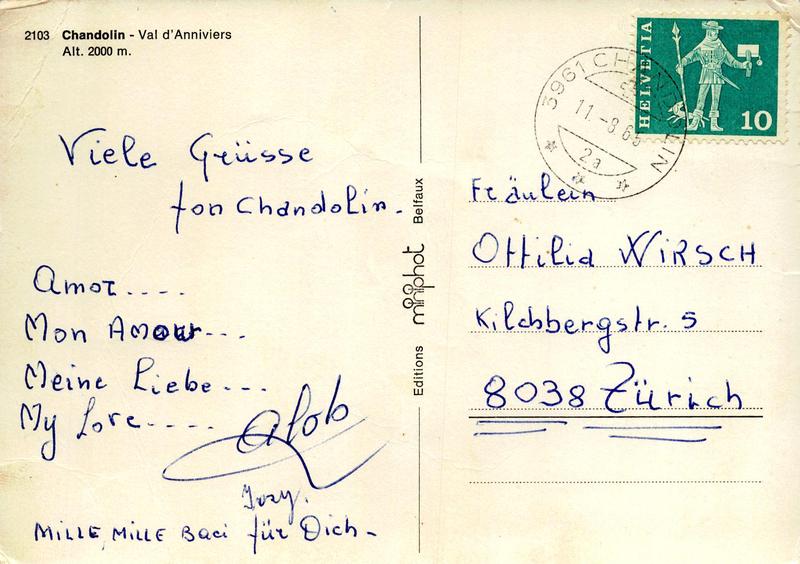 2103 Chandolin - Val d'Anniviers
Alt. 2000 m.
Viele Grüsse
fon Chandolin.
Amor....
Mon Amour...
Meine Liebe...
My Love.....
MILLE, MILLE Baci für Dich-
Editions miniphot Belfaux
HELVETIA
10
3961 CHANDOLIN
2a
Fräulein
Ottilia WIRSCH
Kilchbergstr. 5
8038 Zürich